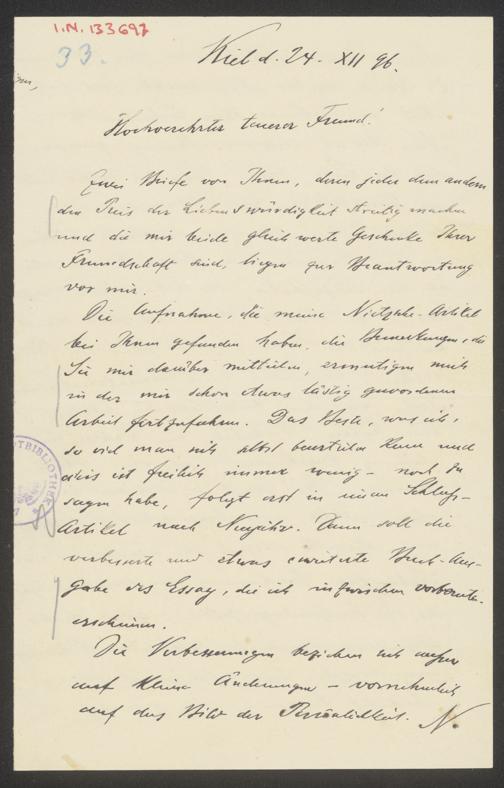 I.N. 133697
33.
Kiel d. 24. XII 96.
Hochverehrter teurer Freund!
Zwei Briefe von Ihnen, deren jeder dem andern
den Preis der Liebenswürdigkeit streitig machen
und die mir beide gleich werte Geschenke Ihrer
Freundschaft sind, liegen zur Beantwortung
vor mir.
Die Aufnahme, die meine Nietzsche-Artikel
bei Ihnen gefunden haben, die Bemerkungen, die
Sie mir darüber mitteilen, ermutigen mich
in der mir schon etwas lästig gewordenen
Arbeit fortzufahren. Das Beste, was ich,
so viel man sich selbst beurteilen kann und
dies ist freilich immer wenig – noch zu
sagen habe, folgt erst in einem Schluß-
Artikel nach Neujahr. Dann soll die
verbesserte und etwas erweiterte Buch-Aus-
gabe des Essay, die ich inzwischen vorbereite
erscheinen.
Die Verbesserungen beziehen sich außer
auf kleine Änderungen – vornehmlich
auf das Bild der Persönlichkeit. N.